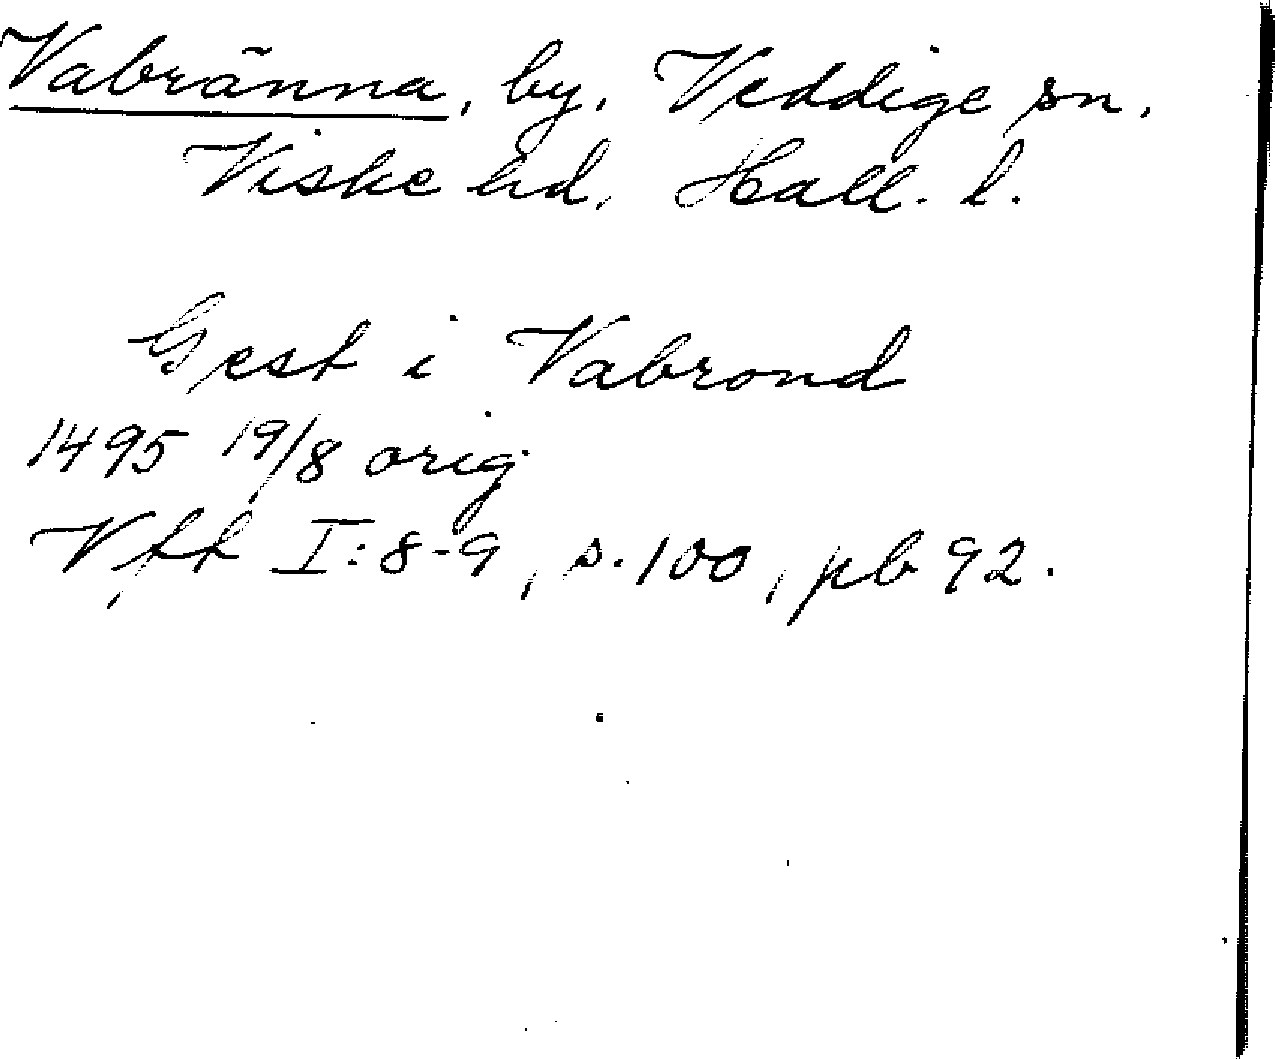 Vabränna, by, Veddige sn.
Viske hd, Hall. l.
Gest i Vabrond
1495 19/8 orig
Vft I:8-9, s.100, pb 92.